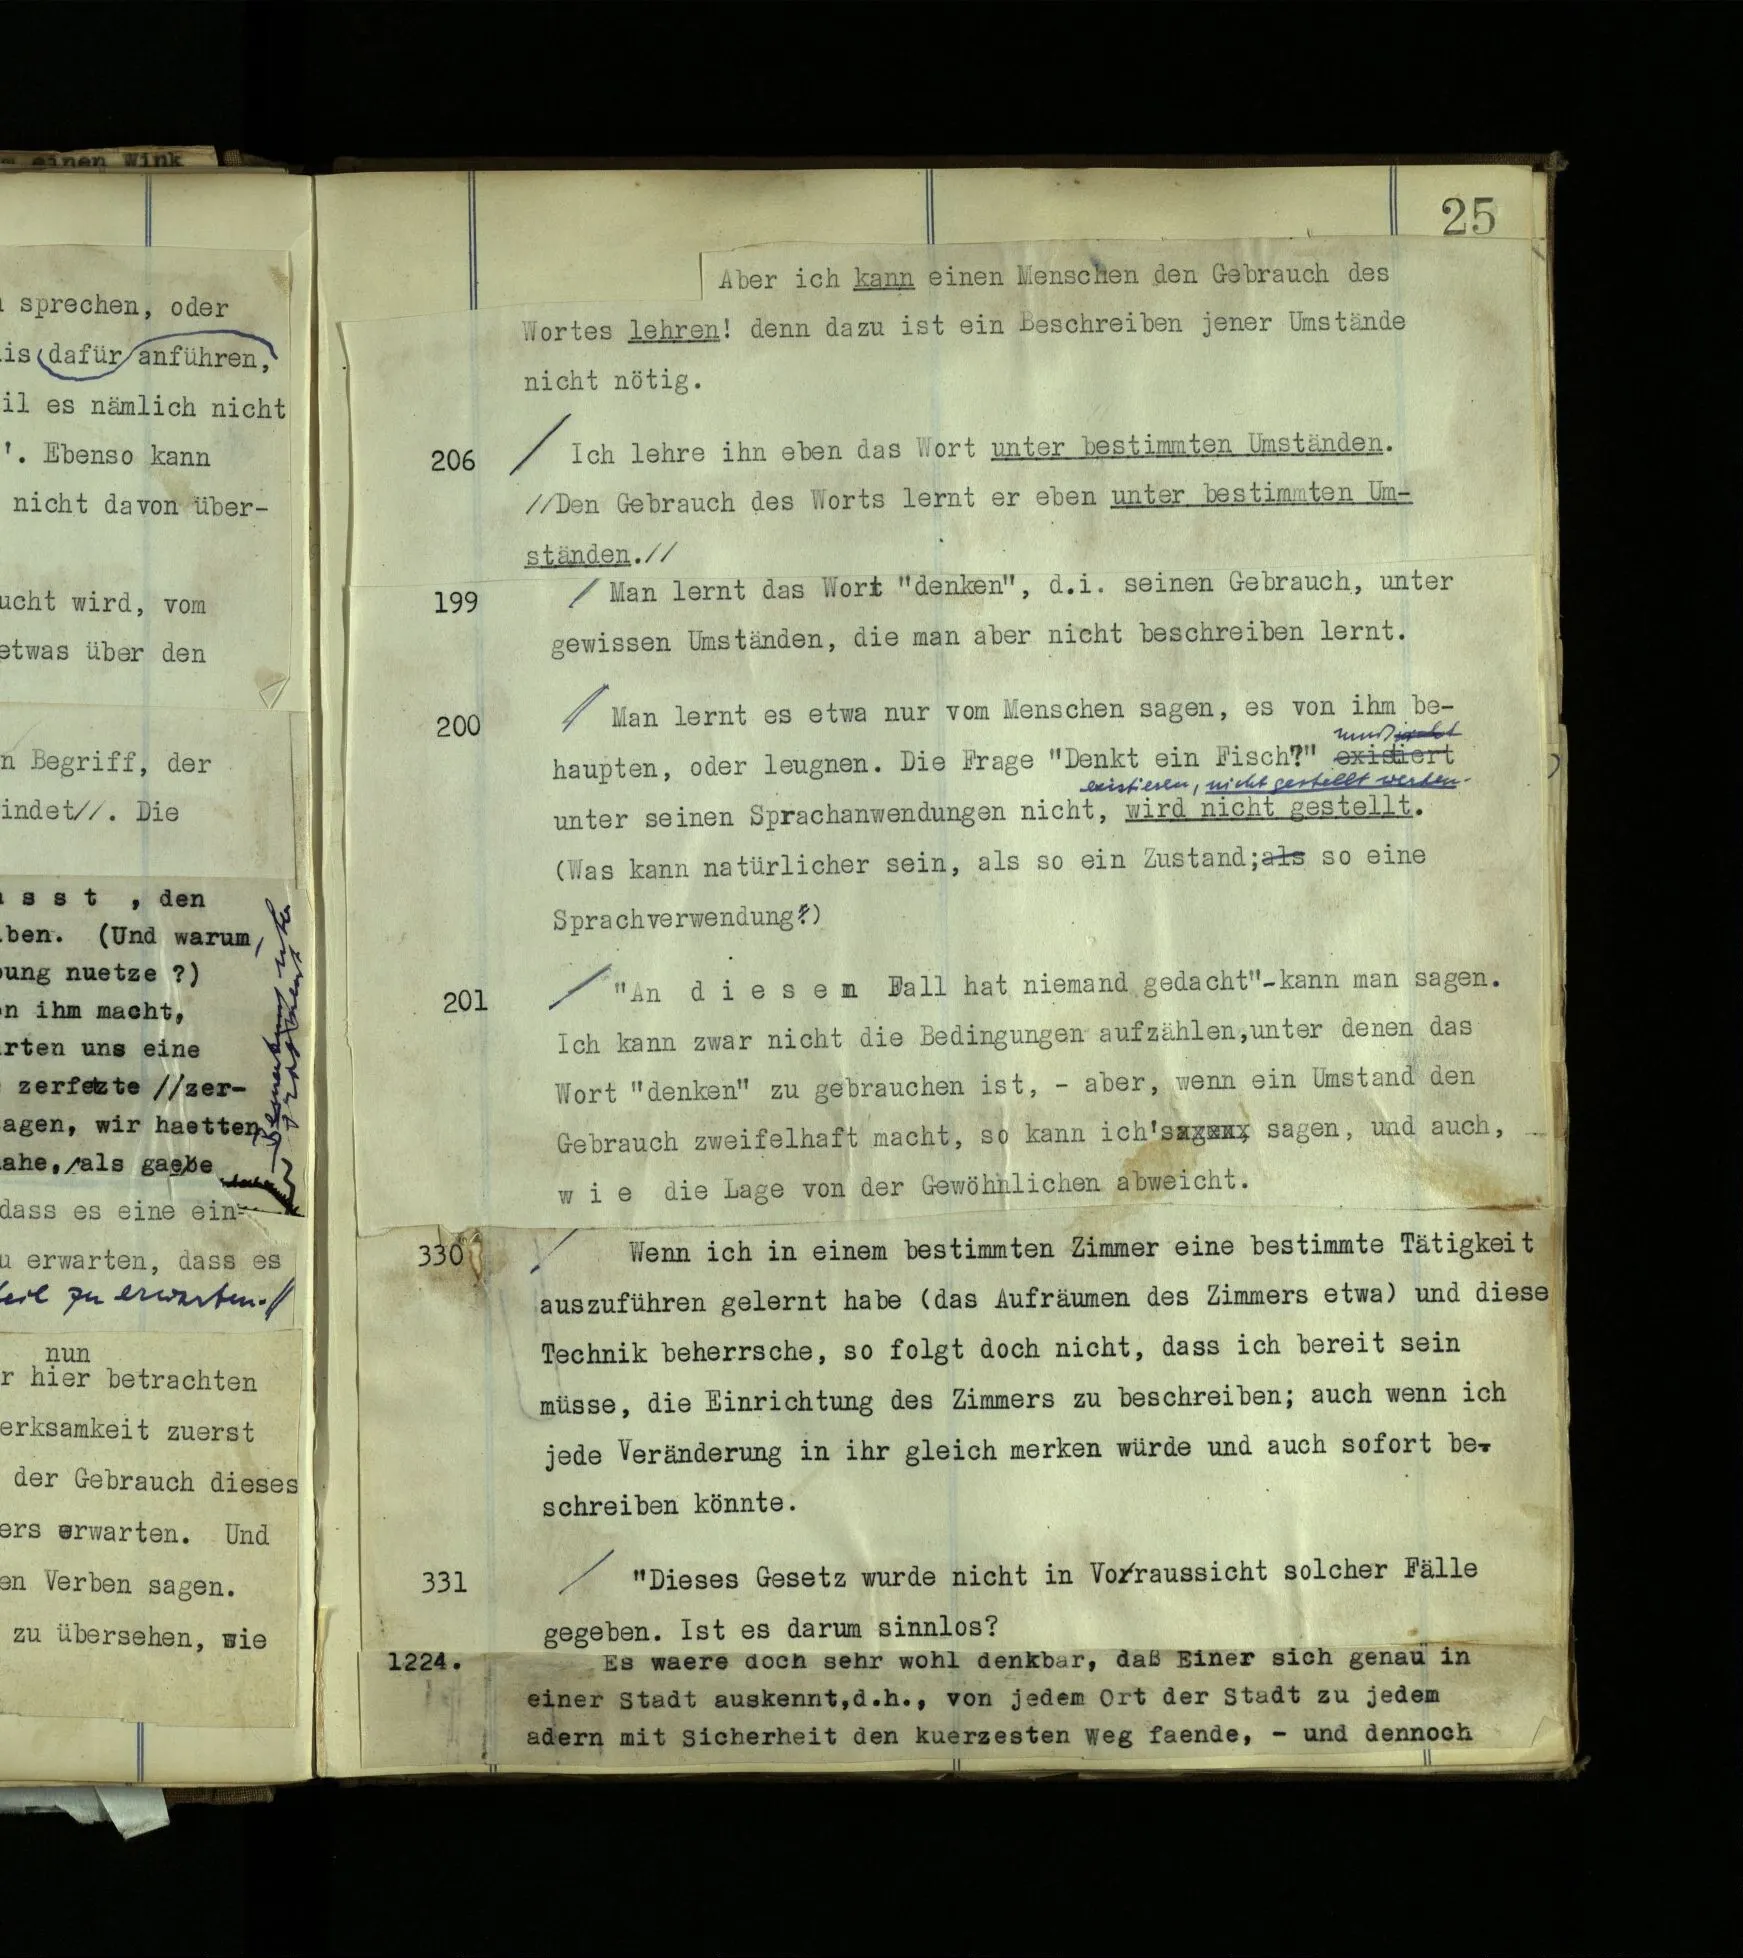 einen Wink
sprechen, oder
is dafür anführen,
il es nämlich nicht
'. Ebenso kann
nicht davon über-
ucht wird, vom
etwas über den
n Begriff, der
indet//. Die
s s t , den
ben. (Und warum,
bung nuetze ?)
n ihm macht,
rten uns eine
zerfetzte //zer-
agen, wir haetten
ahe, als gaebe
dass es eine ein-
u erwarten, dass es
zu erwarten.//
nun
r hier betrachten
erksamkeit zuerst
der Gebrauch dieses
ers erwarten. Und
en Verben sagen.
zu übersehen, wie
25
Aber ich kann einen Menschen den Gebrauch des
Wortes lehren! denn dazu ist ein Beschreiben jener Umstände
nicht nötig.
206 / Ich lehre ihn eben das Wort unter bestimmten Umständen.
//Den Gebrauch des Worts lernt er eben unter bestimmten Um-
ständen.//
199 / Man lernt das Wort "denken", d.i. seinen Gebrauch, unter
gewissen Umständen, die man aber nicht beschreiben lernt.
200 / Man lernt es etwa nur vom Menschen sagen, es von ihm be-
muß
haupten, oder leugnen. Die Frage "Denkt ein Fisch?" existiert
existieren, nicht gestellt werden.
unter seinen Sprachanwendungen nicht, wird nicht gestellt.
(Was kann natürlicher sein, als so ein Zustand;als so eine
Sprachverwendung?)
201 / "An d i e s e n Fall hat niemand gedacht"-kann man sagen.
Ich kann zwar nicht die Bedingungen aufzählen,unter denen das
Wort "denken" zu gebrauchen ist, - aber, wenn ein Umstand den
Gebrauch zweifelhaft macht, so kann ich's sagen, und auch,
w i e die Lage von der Gewöhnlichen abweicht.
330 / Wenn ich in einem bestimmten Zimmer eine bestimmte Tätigkeit
auszuführen gelernt habe (das Aufräumen des Zimmers etwa) und diese
Technik beherrsche, so folgt doch nicht, dass ich bereit sein
müsse, die Einrichtung des Zimmers zu beschreiben; auch wenn ich
jede Veränderung in ihr gleich merken würde und auch sofort be-
schreiben könnte.
331 / "Dieses Gesetz wurde nicht in Vorraussicht solcher Fälle
gegeben. Ist es darum sinnlos?
1224. Es waere doch sehr wohl denkbar, daß Einer sich genau in
einer Stadt auskennt,d.h., von jedem Ort der Stadt zu jedem
adern mit Sicherheit den kuerzesten Weg faende, - und dennoch